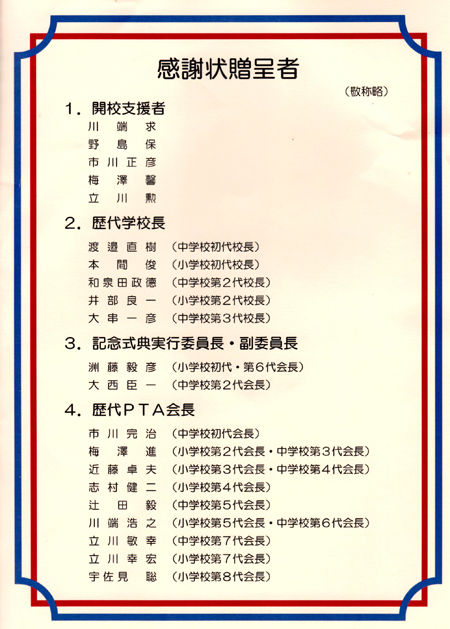 感謝状贈呈者
（敬称略）
1．開校支援者
川端求
野島保
市川正彦
梅澤馨
立川勲
2．歴代学校長
渡邉直樹（中学校初代校長）
本間俊（小学校初代校長）
和泉田政德（中学校第2代校長）
井部良一（小学校第2代校長）
大串一彦（中学校第3代校長）
3．記念式典実行委員長・副委員長
洲藤毅彦（小学校初代・第6代会長）
大西臣一（中学校第2代会長）
4．歴代PTA会長
市川完治（中学校初代会長）
梅澤進（小学校第2代会長・中学校第3代会長）
近藤卓夫（小学校第3代会長・中学校第4代会長）
志村健二（小学校第4代会長）
辻田毅（中学校第5代会長）
川端浩之（小学校第5代会長・中学校第6代会長）
立川敏幸（中学校第7代会長）
立川幸宏（小学校第7代会長）
宇佐見聡（小学校第8代会長）